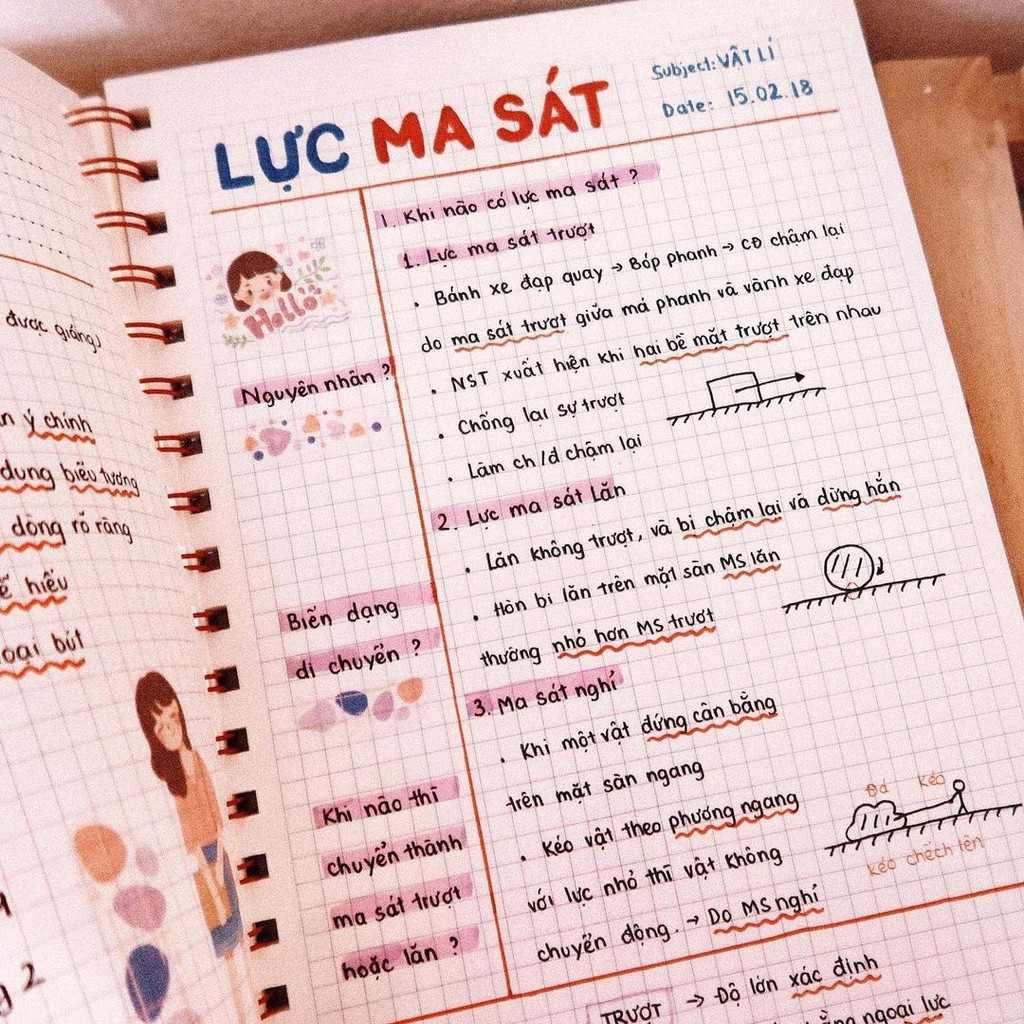 được giảng)
ý chính
dung biểu tượng
dòng rõ ràng
hiểu
bút
2
LỰC MA SÁT
Subject: VẬT LÍ
Date: 15.02.18
Hello
Nguyên nhân?
Biến dạng
di chuyển?
Khi nào thì
chuyển thành
ma sát trượt
hoặc lăn?
1. Khi nào có lực ma sát?
1. Lực ma sát trượt
• Bánh xe đạp quay → Bóp phanh → CĐ chậm lại
do ma sát trượt giữa má phanh và vành xe đạp
• NST xuất hiện khi hai bề mặt trượt trên nhau
• Chống lại sự trượt
• Làm ch/đ chậm lại
2. Lực ma sát Lăn
• Lăn không trượt, và bị chậm lại và dừng hẳn
• Hòn bi lăn trên mặt sàn MS lăn
thường nhỏ hơn MS trượt
3. Ma sát nghỉ
• Khi một vật đứng cân bằng
trên mặt sàn ngang
• Kéo vật theo phương ngang
với lực nhỏ thì vật không
chuyển động. → Do MS nghỉ
Đá
Kéo
kéo chếch lên
TRƯỢT → Độ lớn xác định
ngoại lực